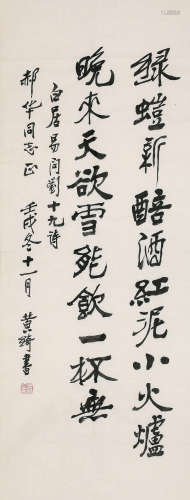 綠螘新醅酒紅泥小火爐
晚來天欲雪能飲一杯無
白居易問劉十九詩
郝华同志正 壬戌冬十一月 黄綺書